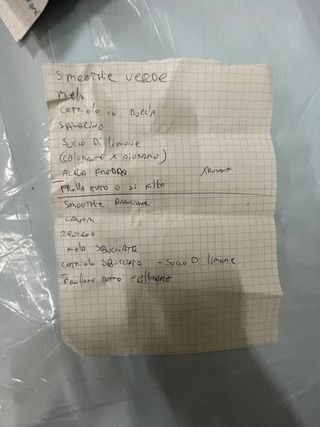 SMOOTHIE VERDE
MELA
CETRIOLO IN BUCCIA
SPINACINO
SUCCO DI LIMONE
(COLORANTE X AIUTARE)
ACQUA FREDDA XANTANA
FRULLA TUTTO E SI FILTRA
SMOOTHIE ARANCIONE
CAROTA
ZENZERO
MELA SBUCCIATA
CETRIOLO SBUCCIATO - SUCCO DI LIMONE
FRULLARE TUTTO E FILTRARE